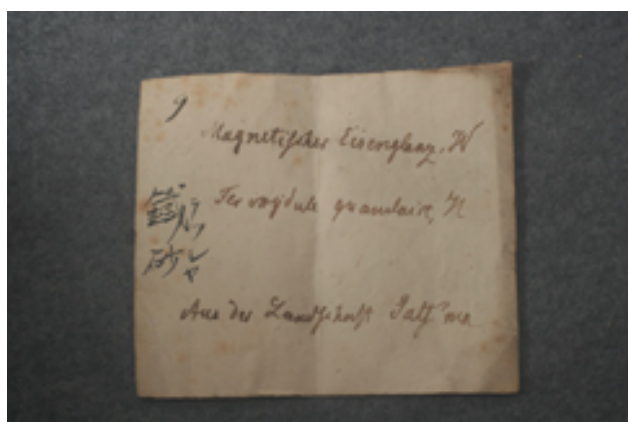 9
Magnetischer Eisenglanz. W
Fer oxydulé granulaire, H
鐵
砂
Aus der Landschaft Satſ'ma